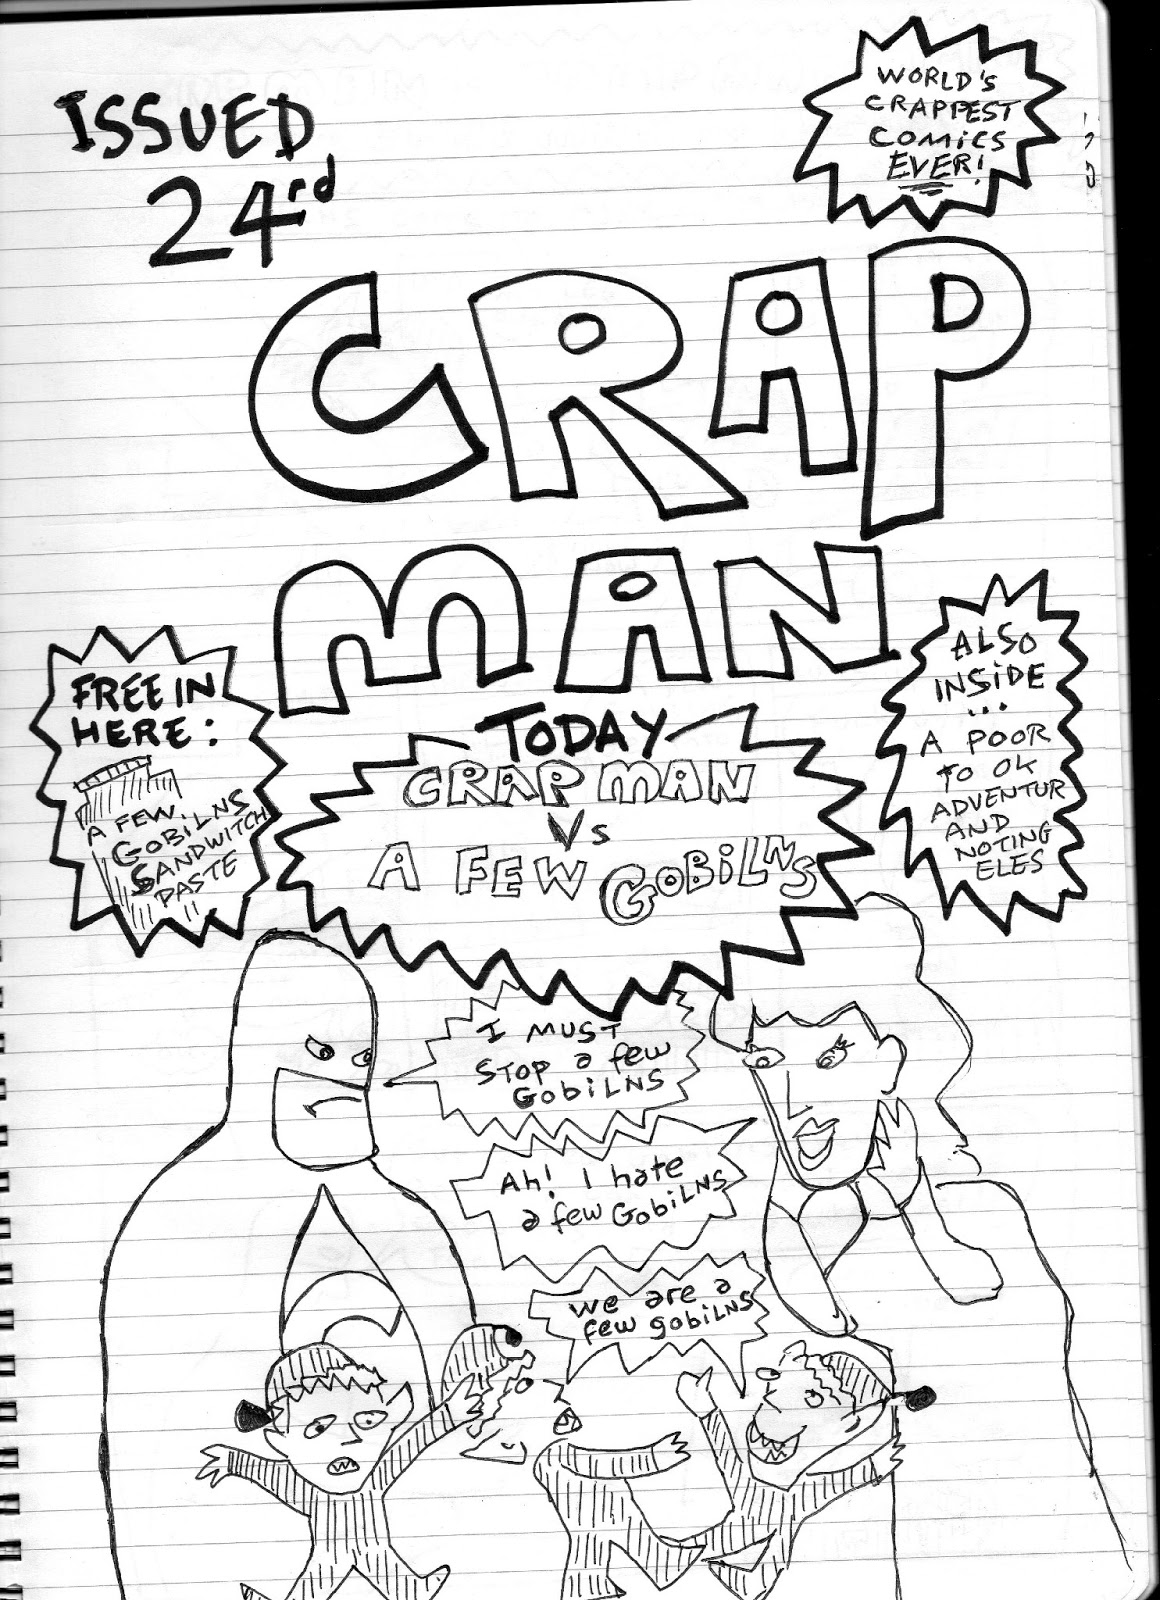 ISSUED
24rd
WORLD'S
CRAPPEST
COMICS
EVER!
CRAP
MAN
FREE IN
HERE:
A FEW
GOBILNS
SANDWITCH
PASTE
TODAY
CRAP MAN
Vs
A FEW GOBILNS
ALSO
INSIDE
...
A POOR
TO OK
ADVENTUR
AND
NOTING
ELES
I MUST
STOP a few
GobiLNS
Ah! I hate
a few GobiLNS
we are a
few gobilns